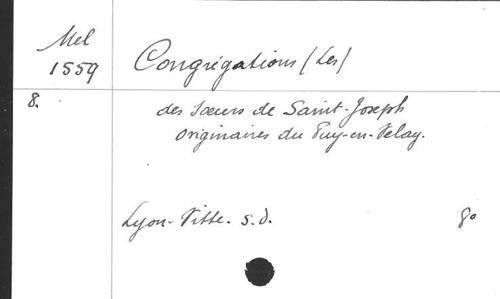 Mel
1559
Congrégations (Les)
8.
des Sœurs de Saint-Joseph
originaires du Puy-en-Velay.
Lyon-Vitte. s.d. 8°